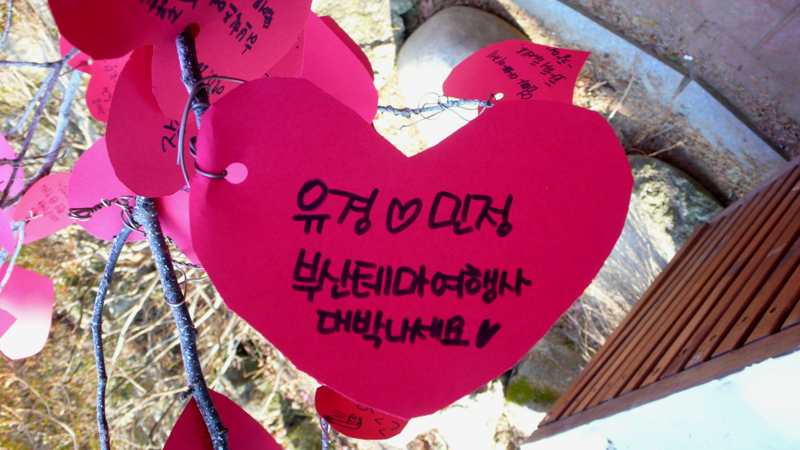 유경♡민정
부산테마여행사
대박나세요♥